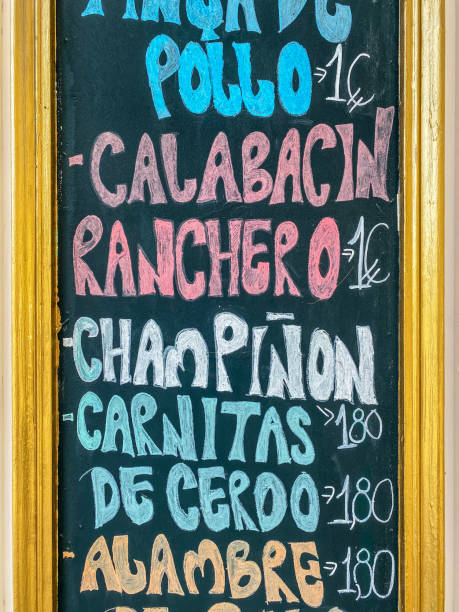 TINGA DE
POLLO →1€
-CALABACIN
RANCHERO →1€
-CHAMPIÑON
-CARNITAS →1,80
DE CERDO →1,80
-ALAMBRE →1,80
DE